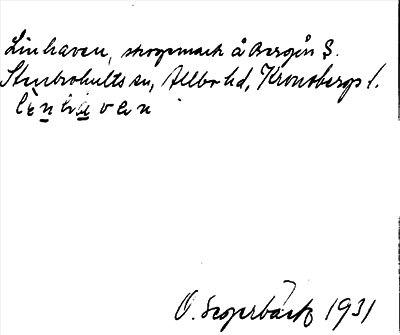 Linhaven, skogsmark å Bergön S.
Stenbrohults sn, Allbo hd, Kronobergs l.
lìnhàven
O. Segerbäck 1931